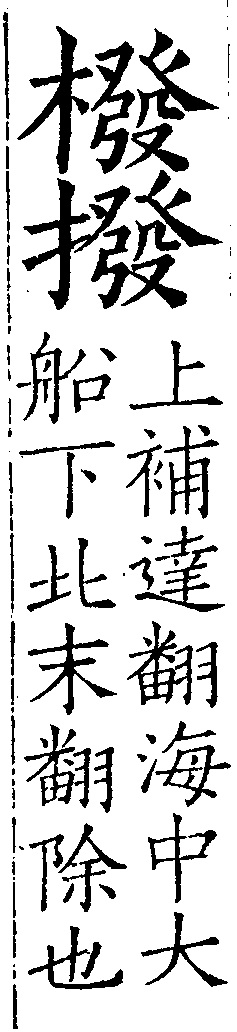 橃撥
上補達翻海中大
船下北末翻除也